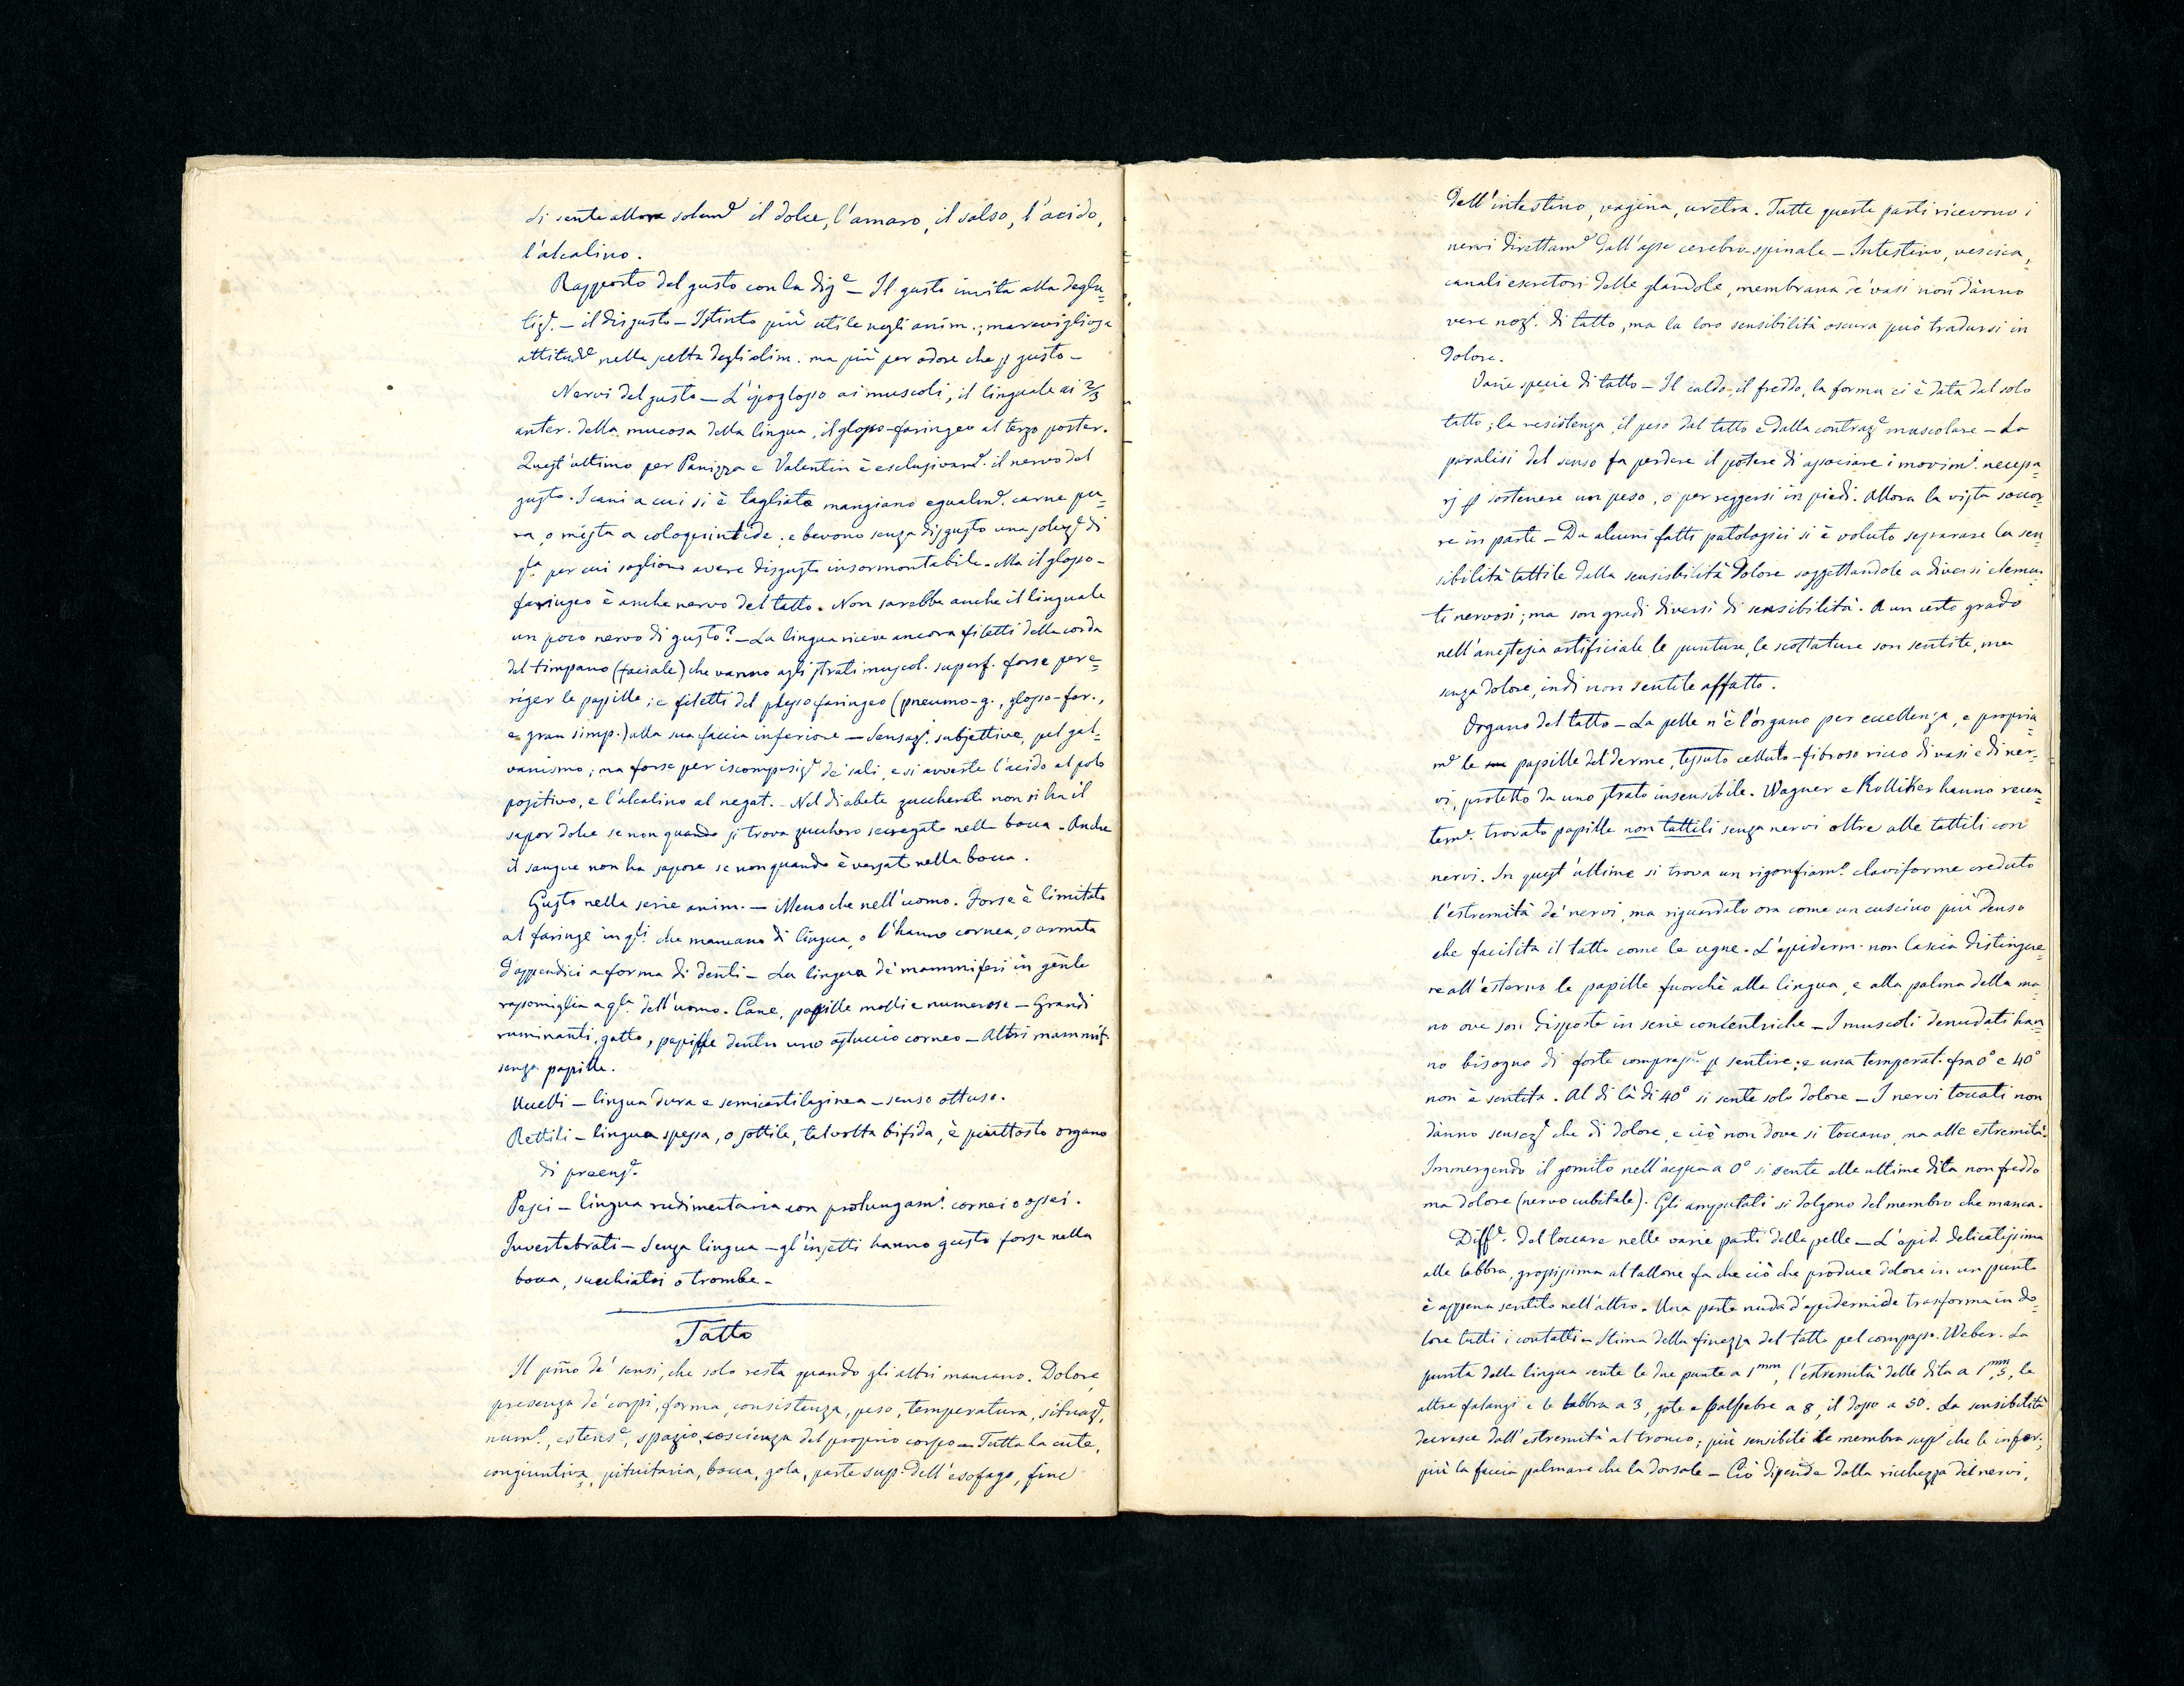 si sente allora solam.e il dolce, l'amaro, il salso, l'acido,
l'alcalino.
Rapporto del gusto con la dig.e — Il gusto invita alla deglu=
tiz.e — il disgusto — Istinto più utile negli anim.; maravigliosa
attitud.e nella scelta degli alim. ma più per odore che p gusto —
Nervi del gusto — L'ipoglosso ai muscoli, il linguale ai 2/3
anter. della mucosa della lingua, il glosso-faringeo al terzo poster.
Quest'ultimo per Panizza e Valentin è esclusivam.e il nervo del
gusto. I cani a cui si è tagliato mangiano egualm.e carne pu=
ra, o mista a coloquintide; e bevono senza disgusto una soluz.e di
q.la per cui sogliono avere disgusto insormontabile. Ma il glosso-
faringeo è anche nervo del tatto. Non sarebbe anche il linguale
un poco nervo di gusto? — La lingua riceve ancora filetti della corda
del timpano (faciale) che vanno agli strati muscol. superf. forse per e=
riger le papille; e filetti del plesso faringeo (pneumo-g., glosso-far.,
e gran simp.) alla sua faccia inferiore — Sensaz.i subjettive, pel gal=
vanismo; ma forse per iscomposiz.e de' sali, e si avverte l'acido al polo
positivo, e l'alcalino al negat. — Nel diabete zuccherato non si ha il
sapor dolce se non quando si trova zucchero secregato nella bocca. Anche
il sangue non ha sapore se non quando è versato nella bocca.
Gusto nella serie anim. — Meno che nell'uomo. Forse è limitato
al faringe in q.li che mancano di lingua, o l'hanno cornea, o armata
d'appendici a forma di denti — La lingua de' mammiferi in gente
rassomiglia a q.la dell'uomo. Cane, papille molli e numerose — Grandi
ruminanti, gatto, papille dentro uno astuccio corneo — Altri mammif.
senza papille.
Uccelli — lingua dura e semicartilaginea — senso ottuso.
Rettili — lingua spessa, o sottile, talvolta bifida, è piuttosto organo
di preenz.e
Pesci — lingua rudimentaria con prolungam.i cornei o ossei.
Invertebrati — Senza lingua — gl'insetti hanno gusto forse nella
bocca, succhiatoi o trombe —
Tatto
Il pmo de' sensi, che solo resta quando gli altri mancano. Dolore,
presenza de' corpi, forma, consistenza, peso, temperatura, situaz.e,
num.o, estens.e, spazio, coscienza del proprio corpo — Tutta la cute,
congiuntiva, pituitaria, bocca, gola, parte sup. dell'esofago, fine
dell'intestino, vagina, uretra. Tutte queste parti ricevono i
nervi direttam.e dall'asse cerebro-spinale — Intestino, vescica,
canali escretori delle glandole, membrana de' vasi non dànno
vere noz.i di tatto, ma la loro sensibilità oscura può tradursi in
dolore.
Varie specie di tatto — Il caldo, il freddo, la forma ci è data dal solo
tatto; la resistenza, il peso dal tatto e dalla contraz.e muscolare — La
paralisi del senso fa perdere il potere di associare i movim.i necessa=
rj p sostenere un peso, o per reggersi in piedi. Allora la vista soccor=
re in parte — Da alcuni fatti patologici si è voluto separare la sen=
sibilità tattile dalla sensisbilità dolore soggettandole a diversi elemen=
ti nervosi; ma son gradi diversi di sensibilità. A un certo grado
nell'anestesia artificiale le punture, le scottature son sentite, ma
senza dolore, indi non sentite affatto.
Organo del tatto — La pelle n'è l'organo per eccellenza, e propria=
m.e le papille del derme, tessuto celluto-fibroso ricco di vasi e di ner=
vi, protetto da uno strato insensibile. Wagner e Kolliker hanno recen=
tem.e trovato papille non tattili senza nervi oltre alle tattili con
nervi. In quest'ultime si trova un rigonfiam.o claviforme creduto
l'estremità de' nervi, ma riguardato ora come un cuscino più denso
che facilita il tatto come le ugne. L'epiderm. non lascia distingue=
re all'esterno le papille fuorchè alla lingua, e alla palma della ma=
no ove son disposte in serie concentriche — I muscoli denudati han=
no bisogno di forte compress.e p sentire; e una temperat. fra 0° e 40°
non è sentita. Al di là di 40° si sente solo dolore — I nervi toccati non
dànno sensaz.e che di dolore, e ciò non dove si toccano, ma alle estremità.
Immergendo il gomito nell'acqua a 0° si sente alle ultime dita non freddo
ma dolore (nervo cubitale). Gli amputati si dolgono del membro che manca.
Diff.e del toccare nelle varie parti della pelle — L'epid. delicatissima
alle labbra, grossissima al tallone fa che ciò che produce dolore in un punto
è appena sentito nell'altro. Una parte nuda d'epidermide trasforma in do=
lore tutti i contatti — Stima della finezza del tatto pel compasso. Weber. La
punta della lingua sente le due punte a 1mm, l'estremità delle dita a 1mm,5, le
altre falangi e le labbra a 3, gote e palpebre a 8, il dosso a 50. La sensibilità
decresce dall'estremità al tronco; più sensibili le membra sup.i che le infer.;
più la faccia palmare che la dorsale — Ciò dipende dalla ricchezza dei nervi,